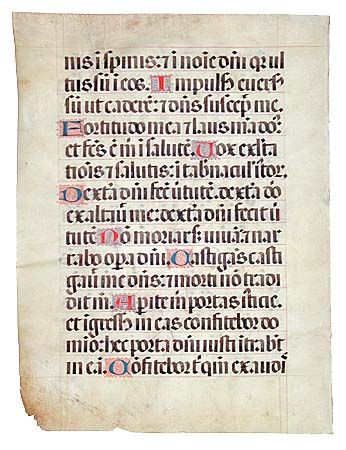 nis i spinis: ⁊ i noīe dn̄i qr ul
tus sū i eos. Impulsꝰ euersꝰ
sū ut caderē: ⁊ dn̄s suscep̄ me.
Fortitudo mea ⁊ laus mea do:
et fcs̄ ē m̄ i salutē. Vox exl̄ta
tiōis ⁊ salutis: i tab̄nacul̄ iƒtor.
Dext̄a dn̄i fec̄ ututē. dext̄a dn̄i
exaltau̅ me: dext̄a dn̄i fecit ū
tutē. Nō moriar s; uiuā: ⁊ nar
rabo op̄a dn̄i. Castigās casti
gau̅ me dn̄s: ⁊ morti nō tradi
dit m̄. Ap̄ite m̄ portas iƒticie.
et īgressꝰ in eas confitebor do
mīo: hec porta dn̄i iusti ītrab̄t
in eā. Cōfitebor t̄ qm̄ exaudi